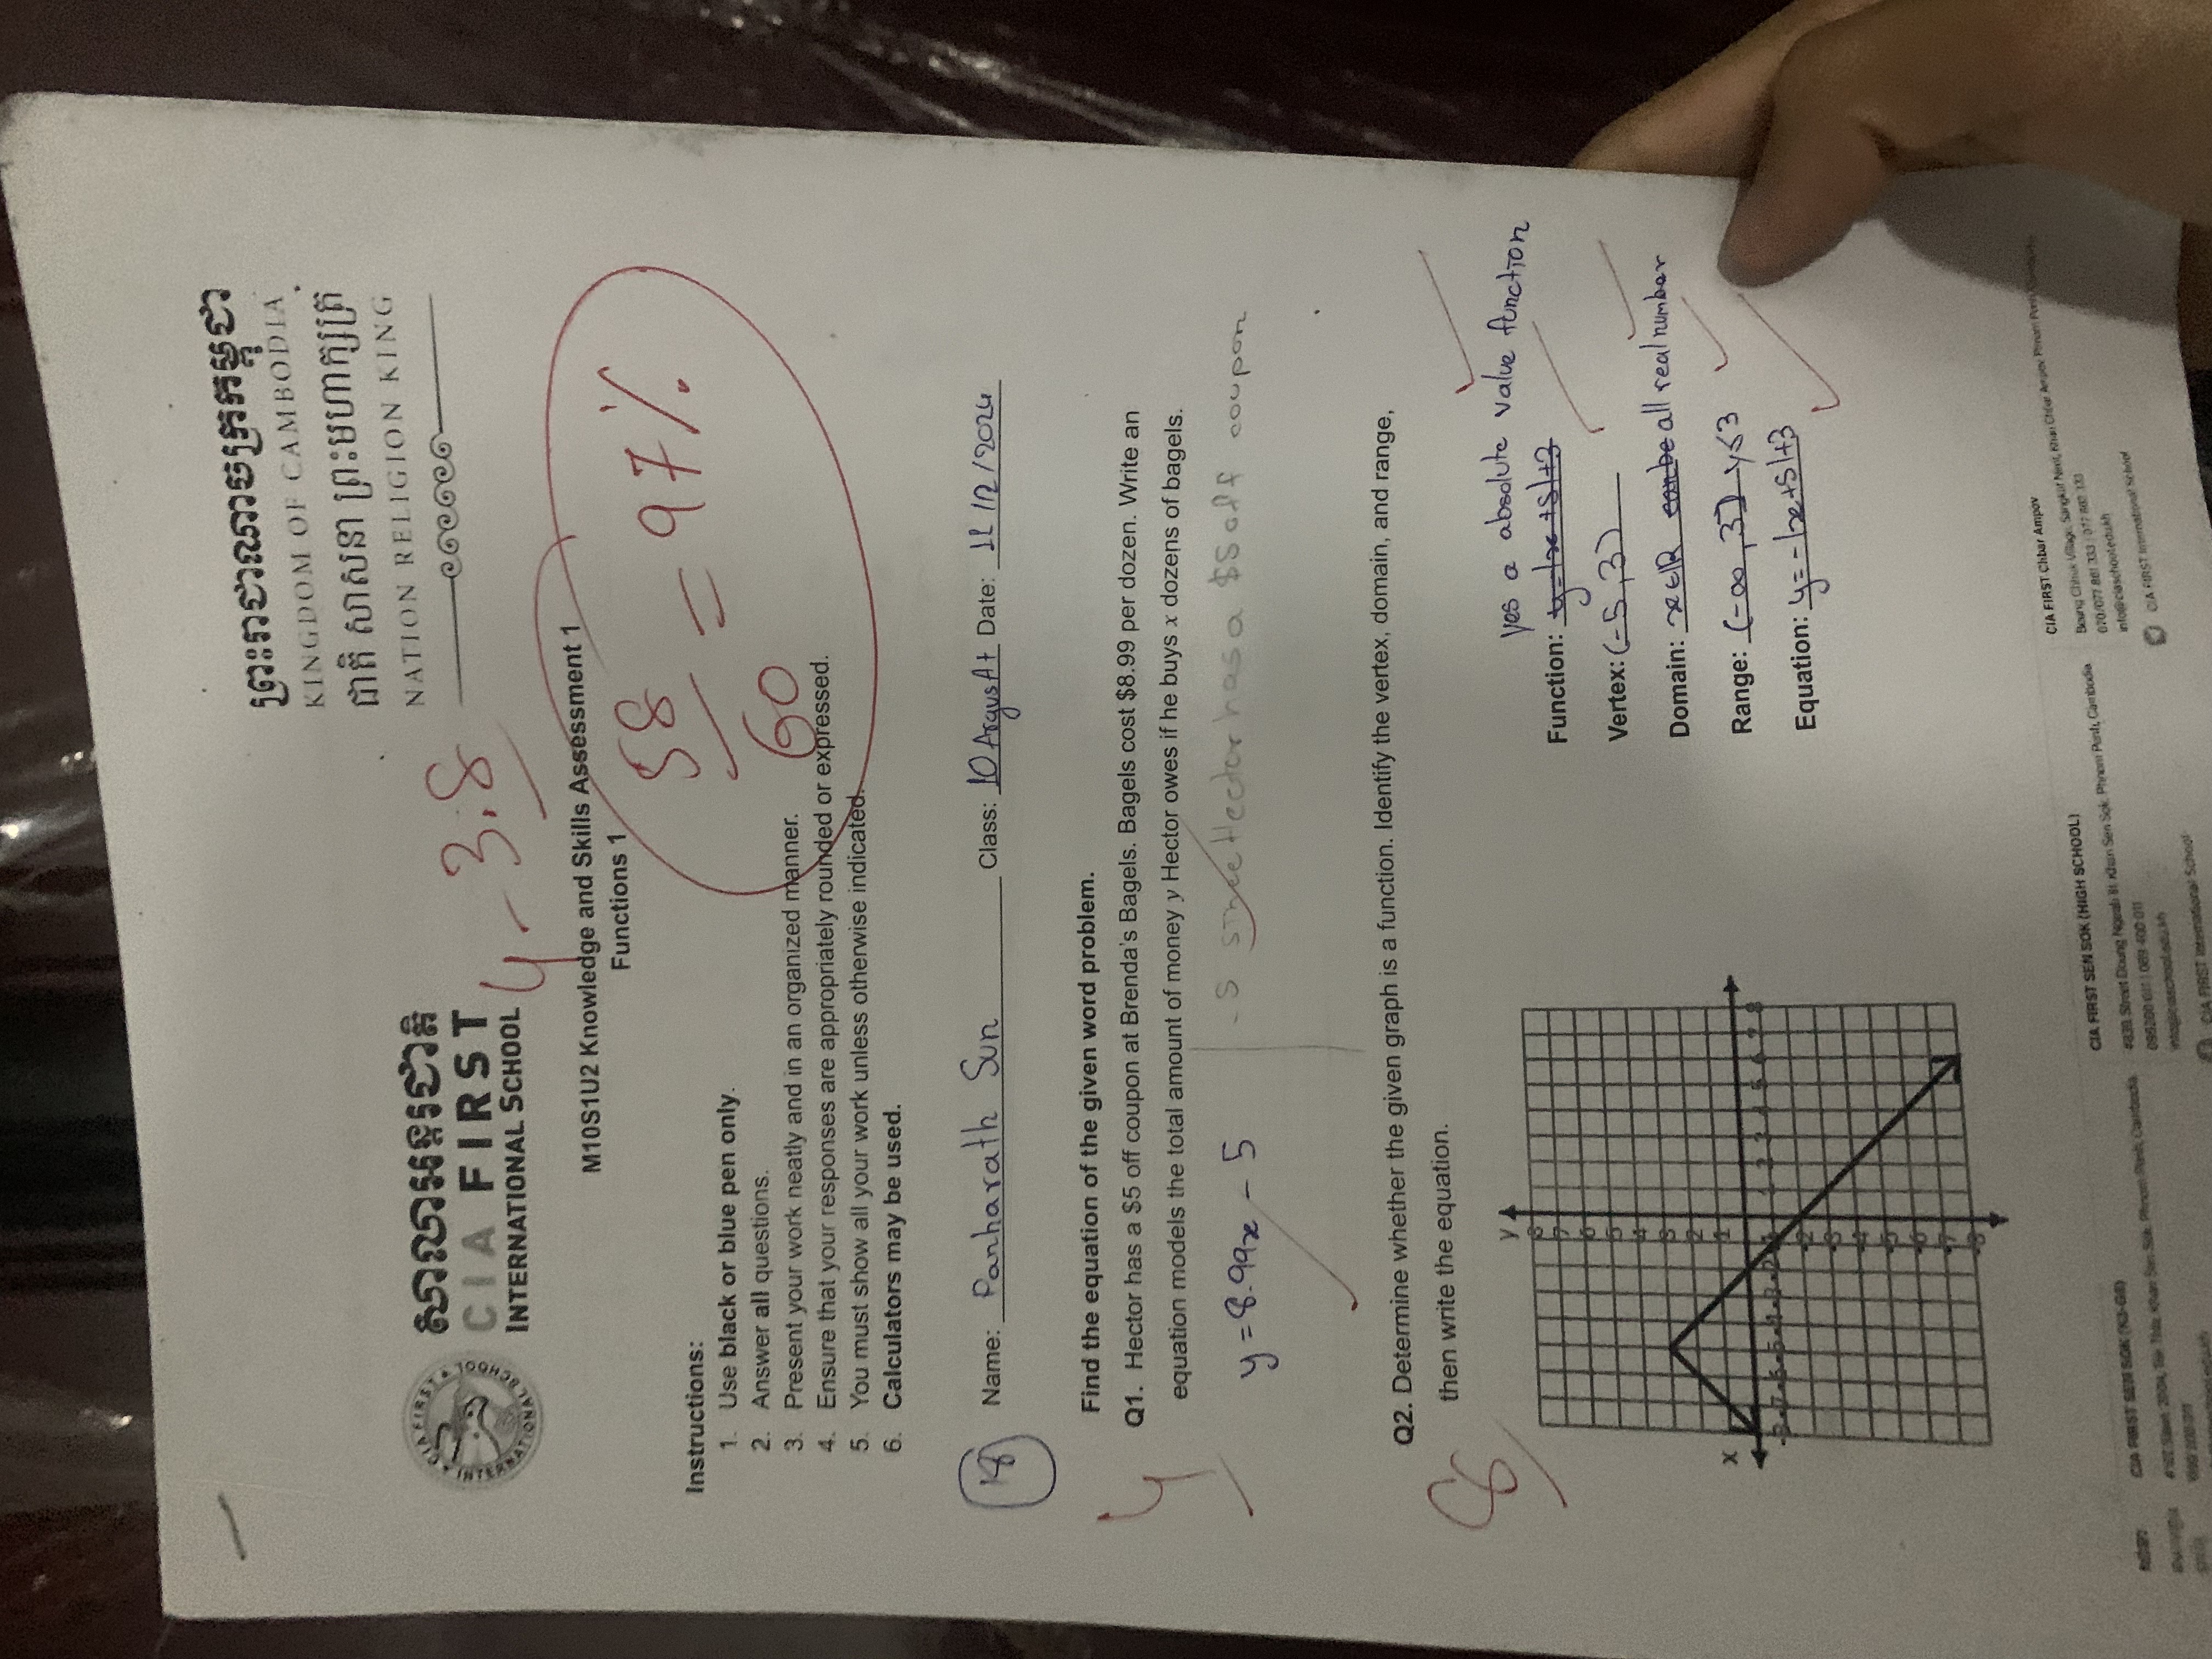 ព្រះរាជាណាចក្រកម្ពុជា
KINGDOM OF CAMBODIA
ជាតិ សាសនា ព្រះមហាក្សត្រ
NATION RELIGION KING
CIA FIRST
INTERNATIONAL SCHOOL
សាលាអន្តរជាតិ
CIA FIRST
INTERNATIONAL SCHOOL
4 - 3.8
M10S1U2 Knowledge and Skills Assessment 1
Functions 1
58
60
= 97%
Instructions:
1. Use black or blue pen only.
2. Answer all questions.
3. Present your work neatly and in an organized manner.
4. Ensure that your responses are appropriately rounded or expressed.
5. You must show all your work unless otherwise indicated.
6. Calculators may be used.
18
Name: Panharath Sun Class: 10 Argus A+ Date: 12/2024
Find the equation of the given word problem.
4
Q1. Hector has a $5 off coupon at Brenda's Bagels. Bagels cost $8.99 per dozen. Write an
equation models the total amount of money y Hector owes if he buys x dozens of bagels.
y = 8.99x - 5
- 5 since Hector has a $5 off coupon
Q2. Determine whether the given graph is a function. Identify the vertex, domain, and range,
8
then write the equation.
yes a absolute value function
Function: y=-|x+5|+3
Vertex: (-5,3)
Domain: x∈ℝ can be all real number
Range: (-∞,3] y≤3
Equation: y=-|x+5|+3
y
8
7
6
5
4
3
2
1
x
-8 -7 -6 -5 -4 -3 -2 -1 1 2 3 4 5 6 7 8
-2
-3
-4
-5
-6
-7
-8
CIA FIRST SEN SOK (K3-G8)
Khan Sen Sok, Phnom Penh, Cambodia
CIA FIRST SEN SOK (HIGH SCHOOL)
Khan Sen Sok, Phnom Penh, Cambodia
info@ciaschool.edu.kh
CIA FIRST International School
CIA FIRST Chbar Ampov
Khan Chbar Ampov, Phnom Penh, Cambodia
info@ciaschool.edu.kh
CIA FIRST International School